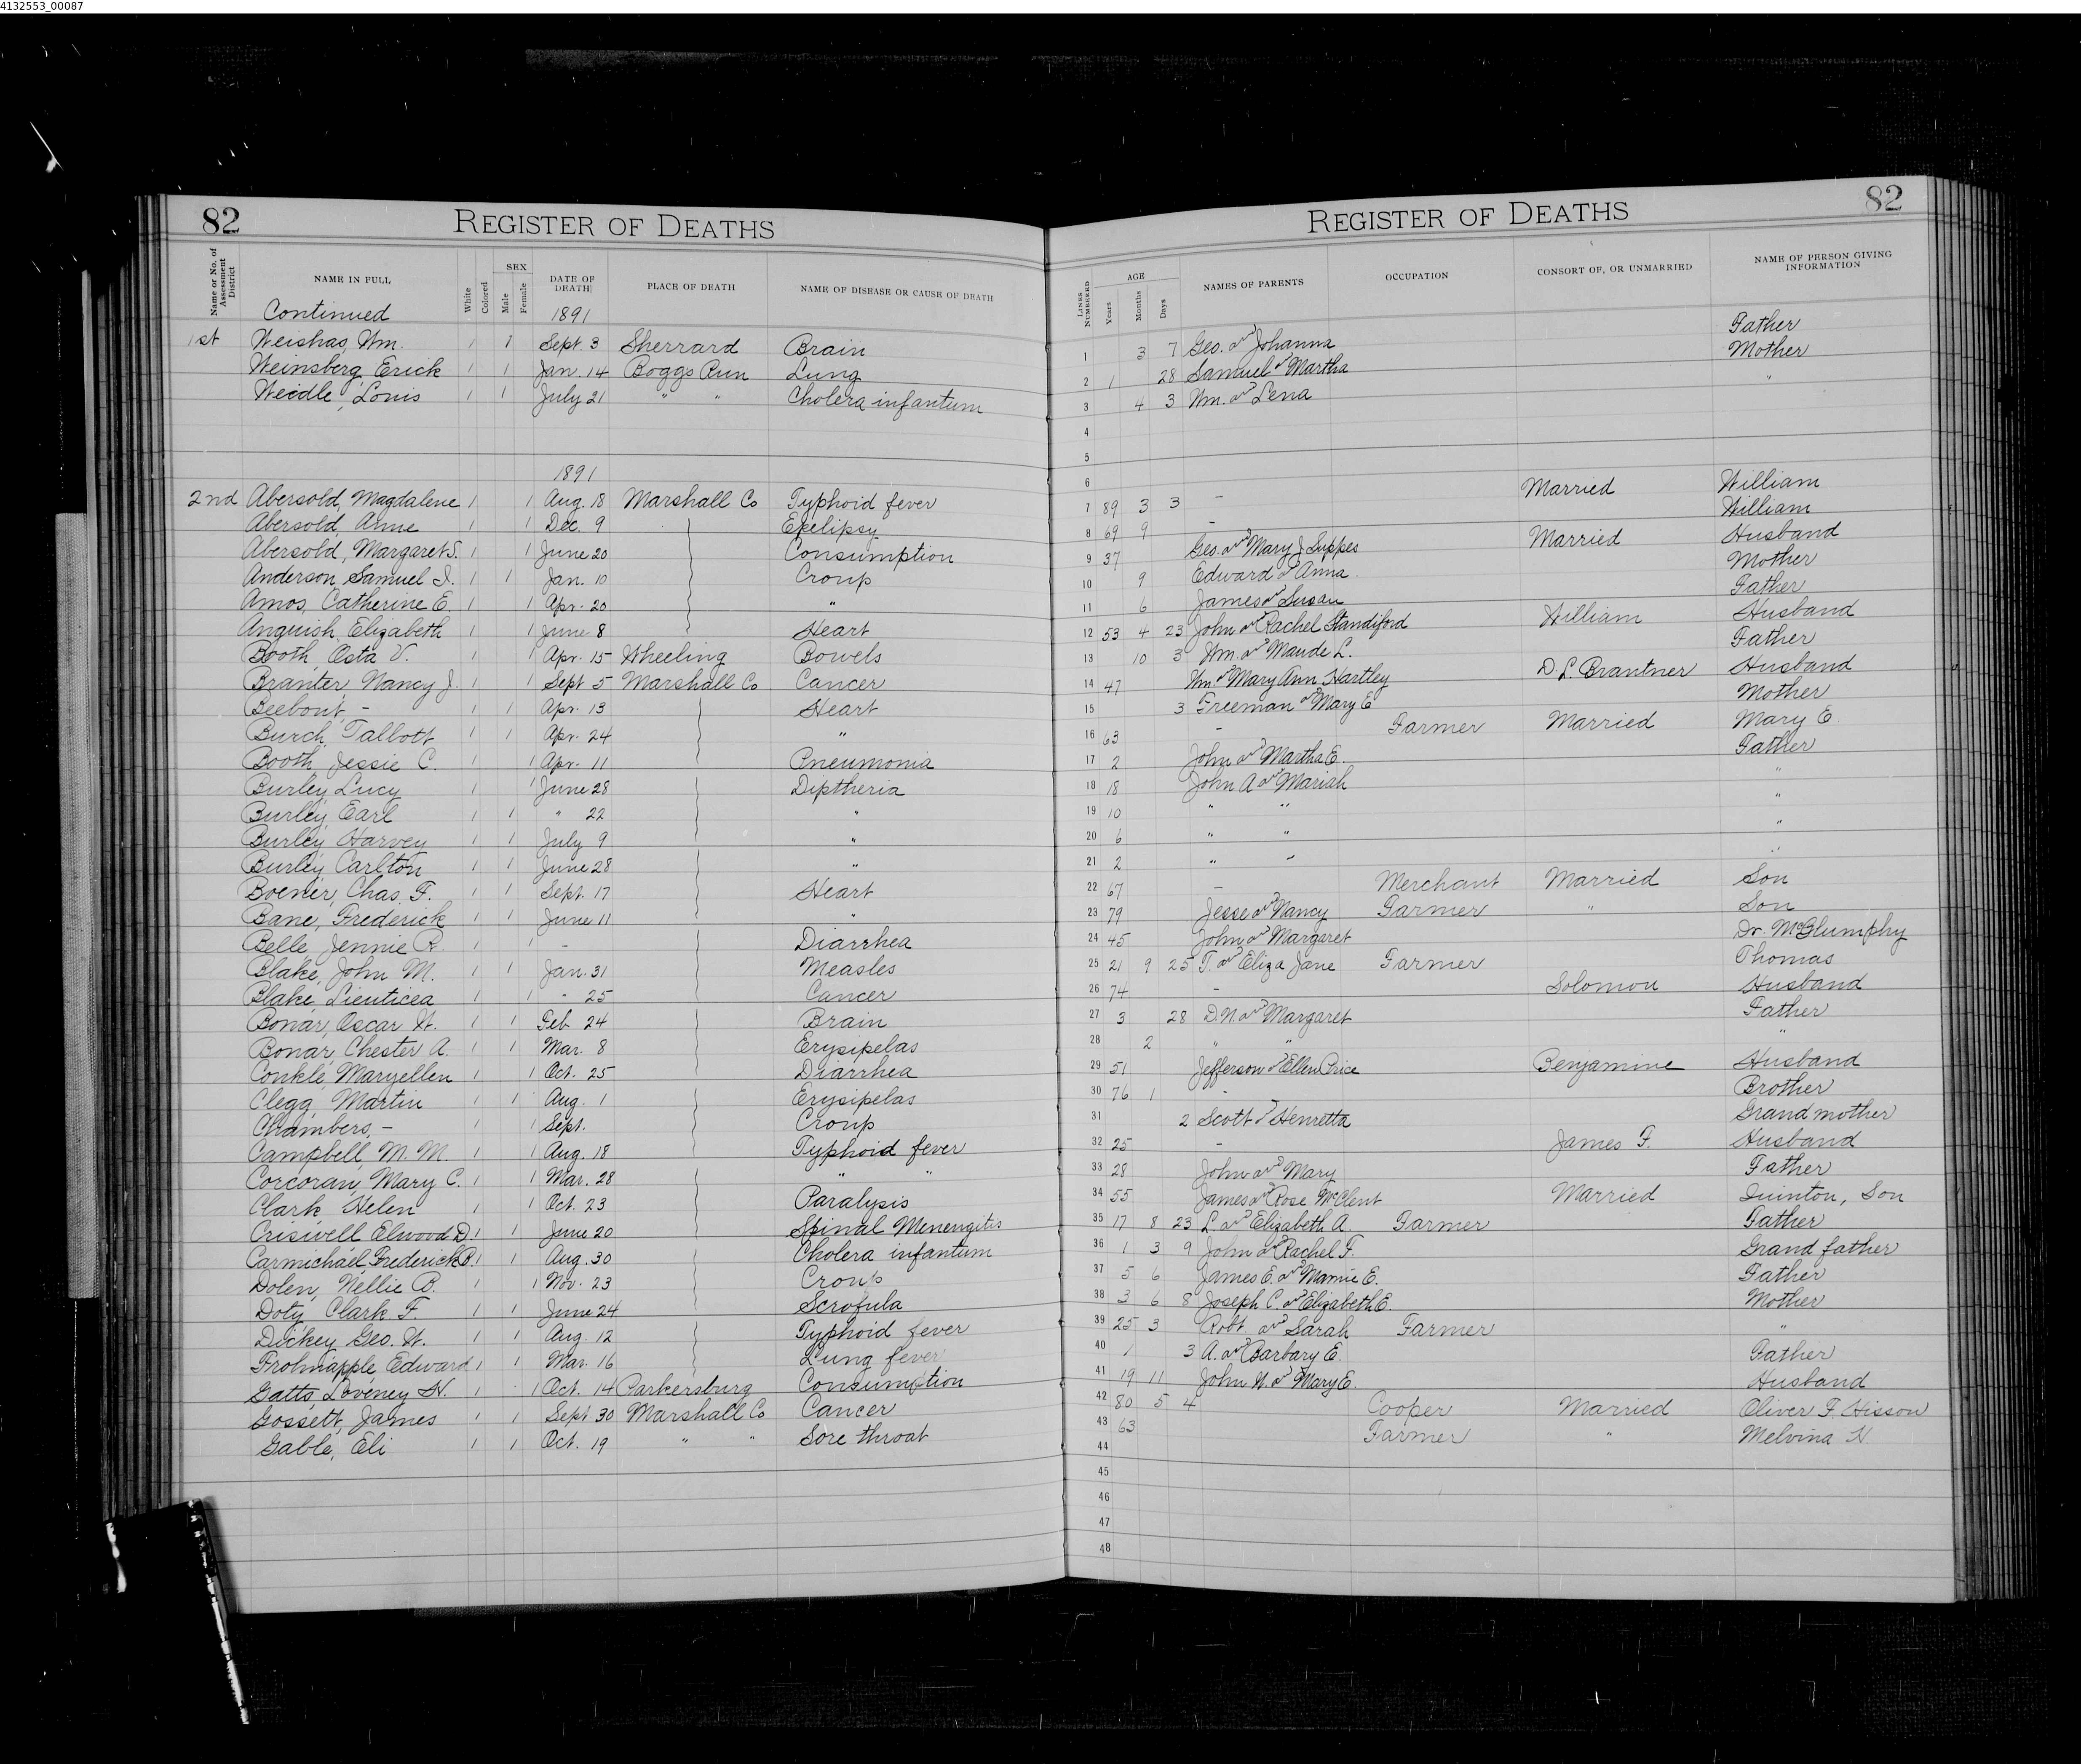 4132553_00087
82 REGISTER OF DEATHS REGISTER OF DEATHS 82
Name or No. of Assessment District NAME IN FULL White Colored SEX Male Female DATE OF DEATH PLACE OF DEATH NAME OF DISEASE OR CAUSE OF DEATH LINES NUMBERED AGE Years Months Days NAMES OF PARENTS OCCUPATION CONSORT OF, OR UNMARRIED NAME OF PERSON GIVING INFORMATION
Continued 1891
1st Weishas, Wm. 1 1 Sept. 3 Sherrard Brain 1 3 7 Geo. and Johanna Father
Weinsberg, Erick 1 1 Jan. 14 Boggs Run Lung 2 1 28 Samuel and Martha Mother
Weidle, Louis 1 1 July 21 " " Cholera infantum 3 4 3 Wm. and Lena "
4
5
1891 6
2nd Abersold, Magdalene 1 1 Aug. 18 Marshall Co Typhoid fever 7 89 3 3 - Married William
Abersold, Anne 1 1 Dec. 9 Epelipsy 8 69 9 - William
Abersold, Margaret S. 1 1 June 20 Consumption 9 37 Geo. and Mary J Suppes Married Husband
Anderson, Samuel I. 1 1 Jan. 10 Croup 10 9 Edward and Anna Mother
Amos, Catherine E. 1 1 Apr. 20 " 11 6 James and Susan Father
Anguish, Elizabeth 1 1 June 8 Heart 12 53 4 23 John and Rachel Standiford William Husband
Booth, Osta V. 1 1 Apr. 15 Wheeling Bowels 13 10 3 Wm. and Maude L. Father
Branter, Nancy J. 1 1 Sept 5 Marshall Co Cancer 14 47 Wm. and Mary Ann Hartley D. L. Brantner Husband
Beebout, - 1 1 Apr. 13 Heart 15 3 Freeman and Mary E Mother
Burch, Talbott 1 1 Apr. 24 " 16 63 - Farmer Married Mary E.
Booth, Jessie C. 1 1 Apr. 11 Pneumonia 17 2 John and Martha E. Father
Burley, Lucy 1 1 June 28 Diptheria 18 18 John A and Mariah "
Burley, Earl 1 1 " 22 " 19 10 " " "
Burley, Harvey 1 1 July 9 " 20 6 " " "
Burley, Carlton 1 1 June 28 " 21 2 " " "
Boener, Chas. F. 1 1 Sept. 17 Heart 22 67 - Merchant Married Son
Bane, Frederick 1 1 June 11 " 23 79 Jesse and Nancy Farmer " Son
Belle, Jennie R. 1 1 - Diarrhea 24 45 John and Margaret Dr. McGlumphy
Blake, John M. 1 1 Jan. 31 Measles 25 21 9 25 T. and Eliza Jane Farmer Thomas
Blake, Lieuticea 1 1 " 25 Cancer 26 74 - Solomon Husband
Bonar, Oscar W. 1 1 Feb 24 Brain 27 3 28 D. N. and Margaret Father
Bonar, Chester A. 1 1 Mar. 8 Erysipelas 28 2 " " "
Conkle, Maryellen 1 1 Oct. 25 Diarrhea 29 51 Jefferson & Ellen Price Benjamine Husband
Clegg, Martin 1 1 Aug. 1 Erysipelas 30 76 1 - Brother
Chambers, - 1 1 Sept. Croup 31 2 Scott & Henretta Grand mother
Campbell, M. M. 1 1 Aug. 18 Typhoid fever 32 25 - James F. Husband
Corcoran, Mary C. 1 1 Mar. 28 " " 33 28 John and Mary Father
Clark, Helen 1 1 Oct. 23 Paralysis 34 55 James and Rose McClent Married Quinton, Son
Criswell Elwood D. 1 1 June 20 Spinal Menengitis 35 17 8 23 L. and Elizabeth A. Farmer Father
Carmichael Frederick P. 1 1 Aug. 30 Cholera infantum 36 1 3 9 John and Rachel F. Grand father
Dolen, Nellie B. 1 1 Nov. 23 Croup 37 5 6 James E. and Mamie E. Father
Doty, Clark F. 1 1 June 24 Scrofula 38 3 6 8 Joseph C. and Elizabeth E. Mother
Dickey, Geo. W. 1 1 Aug. 12 Typhoid fever 39 25 3 Robt. and Sarah Farmer "
Frohnapple, Edward 1 1 Mar. 16 Lung fever 40 1 3 A. and Barbary E. Father
Gatts, Loveney H. 1 1 Oct. 14 Parkersburg Consumption 41 19 11 John W. and Mary E. Husband
Gossett, James 1 1 Sept 30 Marshall Co Cancer 42 80 5 4 Cooper Married Oliver F. Hisson
Gable, Eli 1 1 Oct. 19 " " Sore throat 43 63 Farmer " Melvina H.
44
45
46
47
48